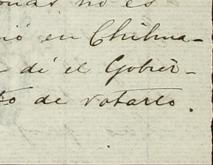 onas no es
ió en Chihua-
e dé el Gobier-
to de votarlo.